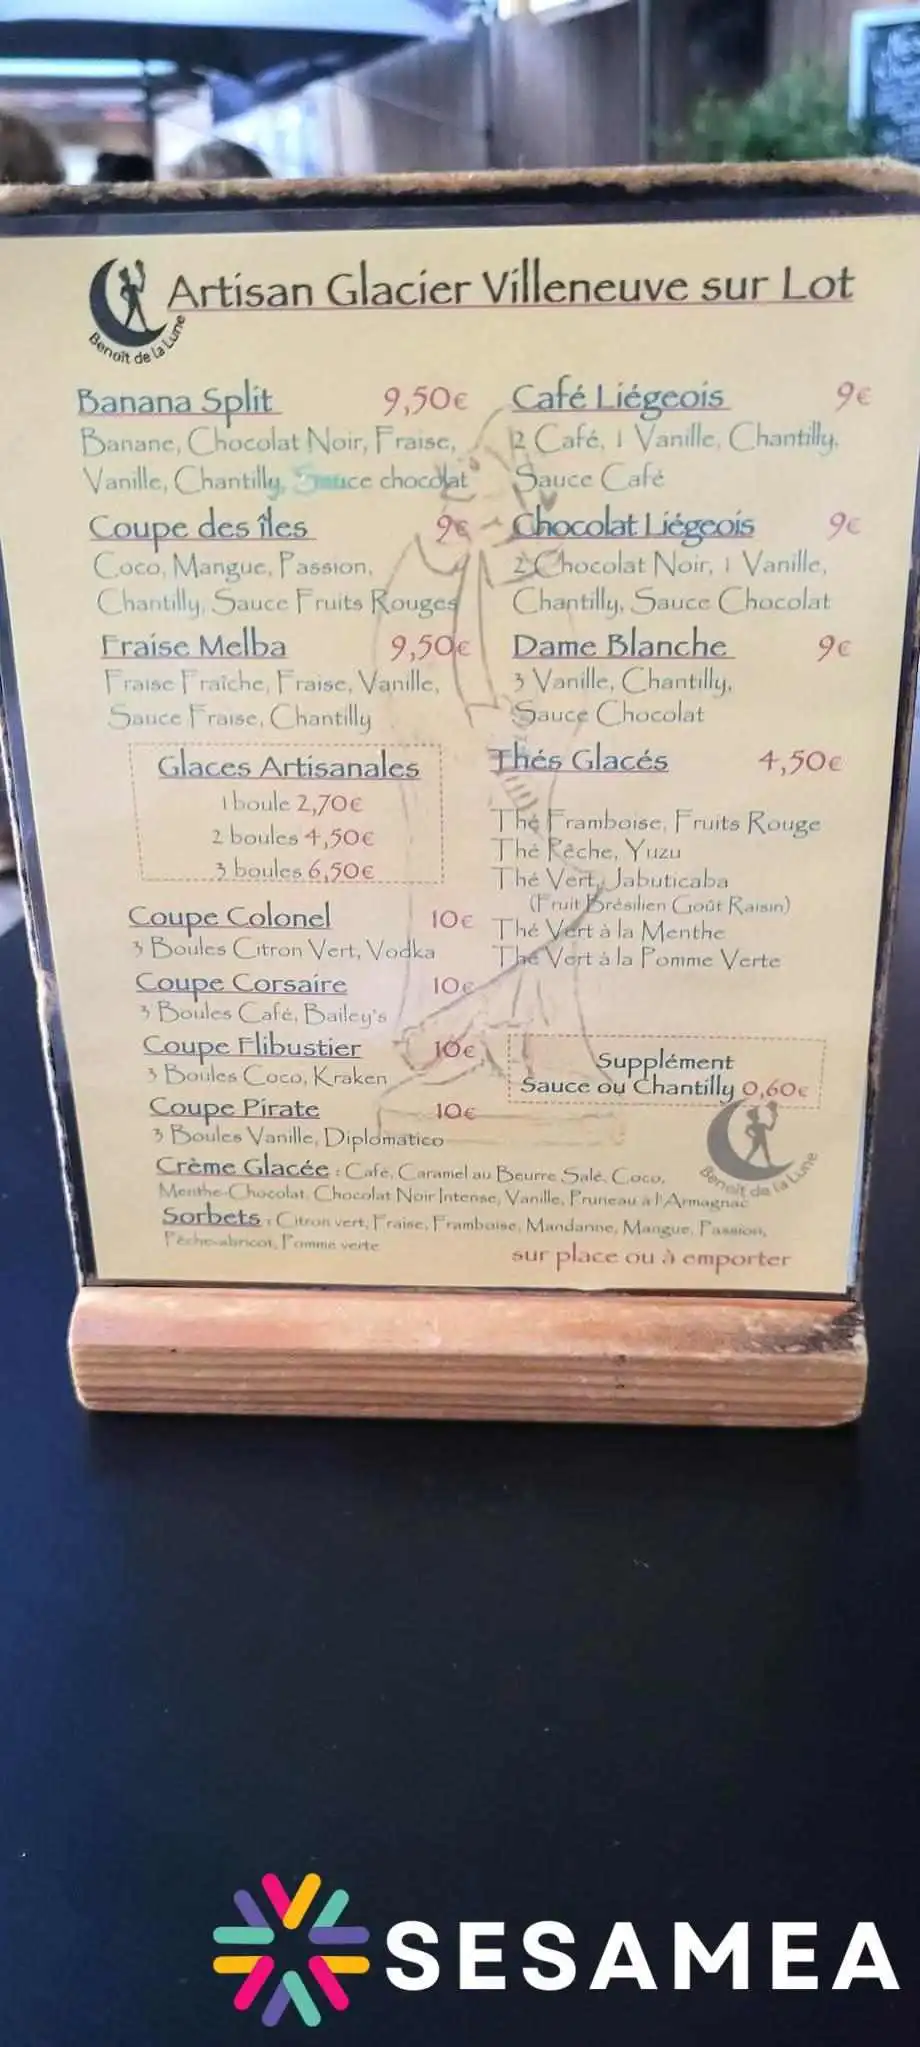 Artisan Glacier Villeneuve sur Lot
Benoît de la Lune
Banana Split 9,50€
Banane, Chocolat Noir, Fraise,
Vanille, Chantilly, Sauce chocolat
Coupe des îles 9€
Coco, Mangue, Passion,
Chantilly, Sauce Fruits Rouges
Fraise Melba 9,50€
Fraise Fraîche, Fraise, Vanille,
Sauce Fraise, Chantilly
Glaces Artisanales
1 boule 2,70€
2 boules 4,50€
3 boules 6,50€
Coupe Colonel 10€
3 Boules Citron Vert, Vodka
Coupe Corsaire 10€
3 Boules Café, Bailey's
Coupe Flibustier 10€
3 Boules Coco, Kraken
Coupe Pirate 10€
3 Boules Vanille, Diplomatico
Café Liégeois 9€
2 Café, 1 Vanille, Chantilly,
Sauce Café
Chocolat Liégeois 9€
2 Chocolat Noir, 1 Vanille,
Chantilly, Sauce Chocolat
Dame Blanche 9€
3 Vanille, Chantilly,
Sauce Chocolat
Thés Glacés 4,50€
Thé Framboise, Fruits Rouge
Thé Pêche, Yuzu
Thé Vert, Jabuticaba
(Fruit Brésilien Goût Raisin)
Thé Vert à la Menthe
Thé Vert à la Pomme Verte
Supplément
Sauce ou Chantilly 0,60€
Benoît de la Lune
Crème Glacée : Café, Caramel au Beurre Salé, Coco,
Menthe-Chocolat, Chocolat Noir Intense, Vanille, Pruneau à l'Armagnac
Sorbets : Citron vert, Fraise, Framboise, Mandarine, Mangue, Passion,
Pêche-abricot, Pomme verte
sur place ou à emporter
SESAMEA